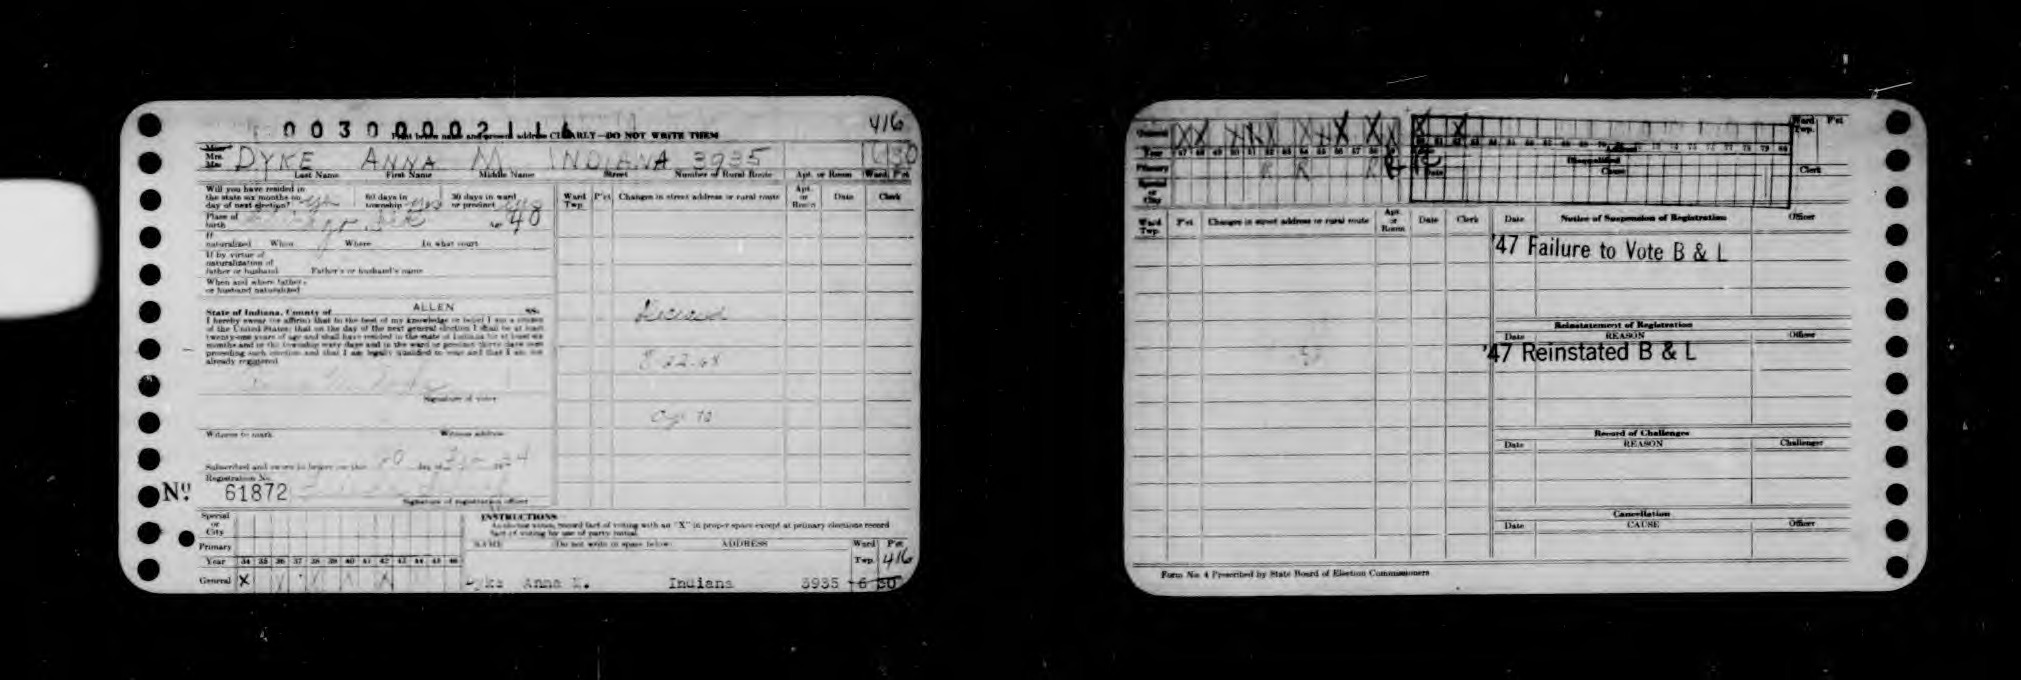 416
Print below name and present address CLEARLY—DO NOT WRITE THEM
Mrs. DYKE ANNA M. INDIANA 3935 6 30
Last Name First Name Middle Name Street Number of Rural Route Apt. or Room Ward P'ct
Will you have resided in the state six months on day of next election? 60 days in township 30 days in ward or precinct
Place of birth Age 40
If naturalized When Where In what court
If by virtue of naturalization of father or husband Father's or husband's name
When and where father or husband naturalized
State of Indiana, County of ALLEN SS.
I hereby swear (or affirm) that to the best of my knowledge or belief I am a citizen
of the United States; that on the day of the next general election I shall be at least
twenty-one years of age and shall have resided in the state of Indiana for at least six
months and in the township sixty days and in the ward or precinct thirty days next
preceding such election and that I am legally qualified to vote and that I am not
already registered
Signature of voter
Witness to mark Witness address
Subscribed and sworn to before me this day of
Registration No.
Nº 61872
Signature of registration officer
Ward Twp. P'ct Changes in street address or rural route Apt. or Room Date Clerk
Deceased
8-22-68
Age 70
Special or City
Primary
Year 34 35 36 37 38 39 40 41 42 43 44 45 46
General X
INSTRUCTIONS
As elector votes, record fact of voting with an "X" in proper space except at primary elections record
fact of voting by use of party initial.
NAME Do not write in space below ADDRESS Ward Twp. P'ct
416
Dyke Anna M. Indiana 3935 6 30
General
Year 47 48 49 50 51 52 53 54 55 56 57 58 59
Primary R R R R
Special or City
Ward Twp. P'ct
Disqualified
Date Cause Clerk
Ward Twp. P'ct Changes in street address or rural route Apt. or Room Date Clerk
Date Notice of Suspension of Registration Officer
'47 Failure to Vote B & L
Reinstatement of Registration
Date REASON Officer
'47 Reinstated B & L
Record of Challenges
Date REASON Challenger
Cancellation
Date CAUSE Officer
Form No. 4 Prescribed by State Board of Election Commissioners